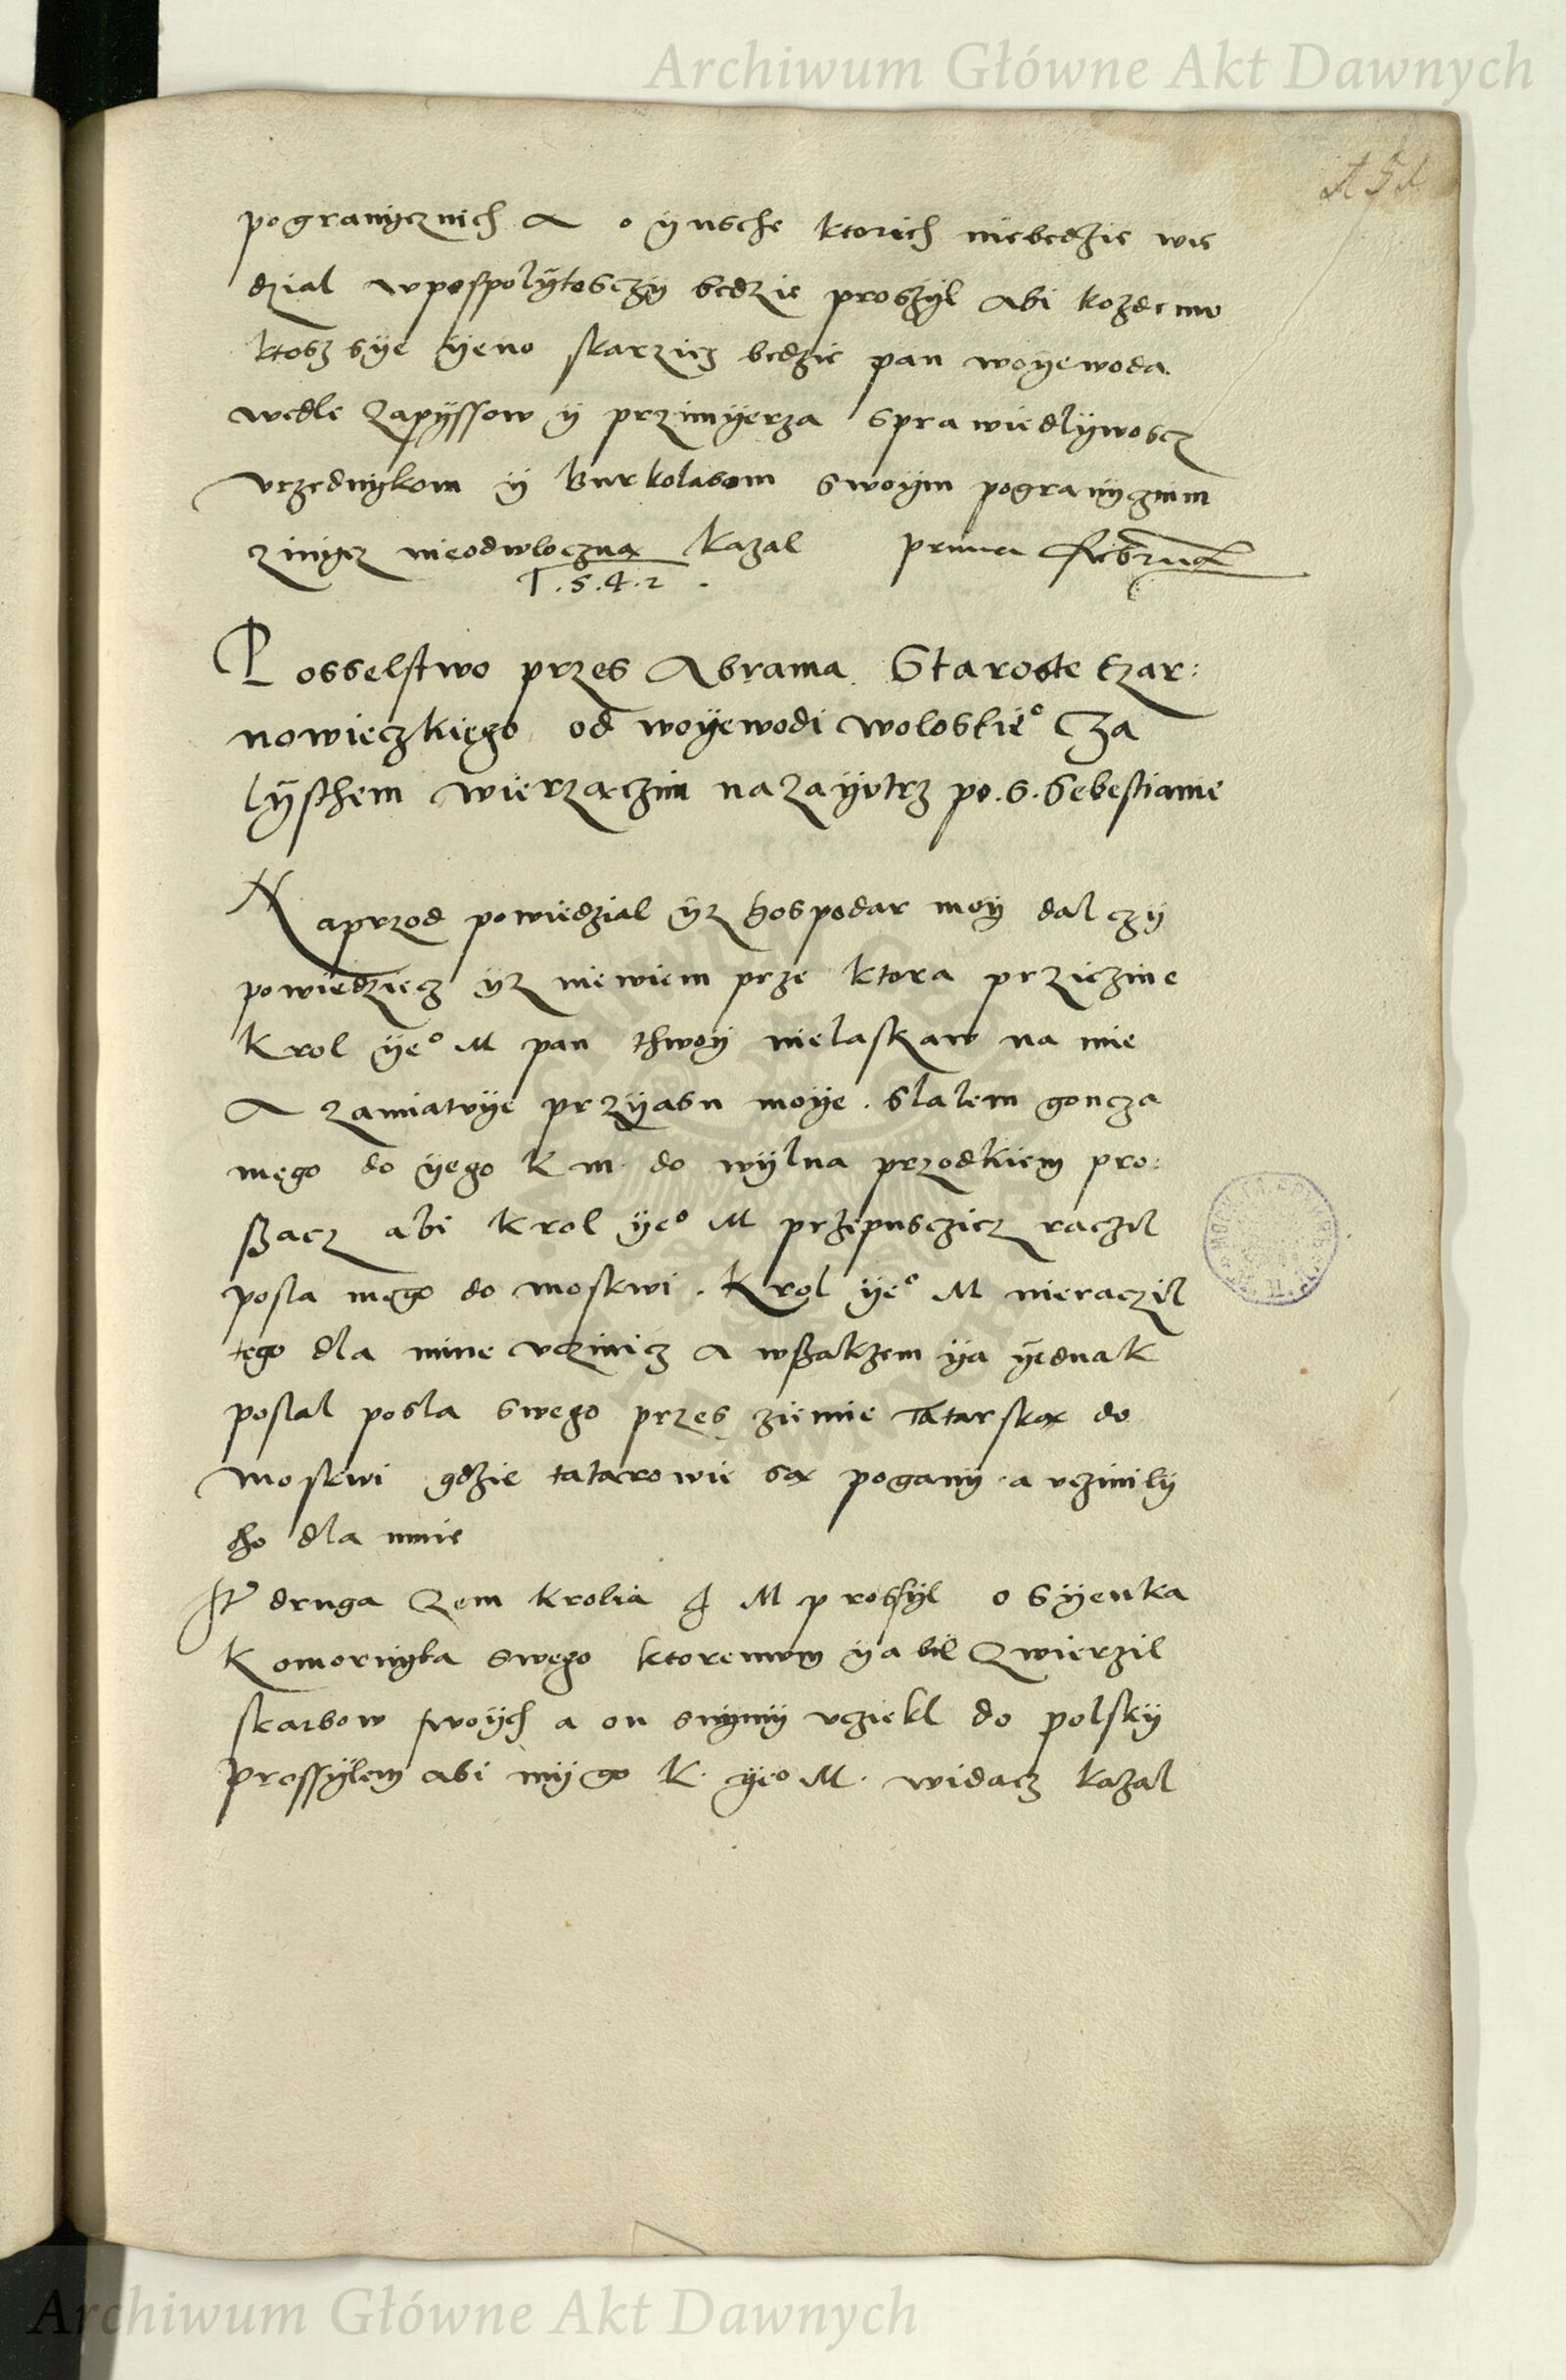 Archiwum Główne Akt Dawnych
151
pogranycznich a o ynsche ktorich niebedzie wie
dzial wpospolytosczy bedzie proszyl abi kozdemu
ktosz sye yeno skarzicz bedzie pan woyewoda
wedle zapyssow y przimyerza sprawiedlywoscz
vrzednykom y Burkolabom swoym pogranycznim
zinycz nieodwloczną kazal prima februarii
1.5.4.2.
Posselstwo przes Abrama Staroste Czar:
nowieczkiego od woyewodi woloskie° Cza
lyschem wierzaczim nazayutrz po .S. Sebestianie
Naprzod powiedzial yz hospodar moy dal czy
powiedziecz yz niewiem prze ktora prziczine
Krol ye° M pan thwoy nielaskaw na mie
A zamiatuye przyasn moye . slalem goncza
mego do yego K m. do wylna przodkiem pro:
szacz abi Krol ye° M przepusczicz raczil
posla mego do moskwi . Krol ye° M nieraczil
tego dla mnie vczinicz a wszakzem ya yednak
poslal posla swego przes ziemie Tatarską do
moskwi gdzie tatarowie są pogany a vczinily
tho dla mnie
It druga Zem krolia J M prossyl o Syenka
Komornyka swego ktoremum ya bil Zwierzil
skarbow swoych a on snymy vciekl do polsky
prossylem abi my go K. ye° M. widacz kazal
Archiwum Główne Akt Dawnych